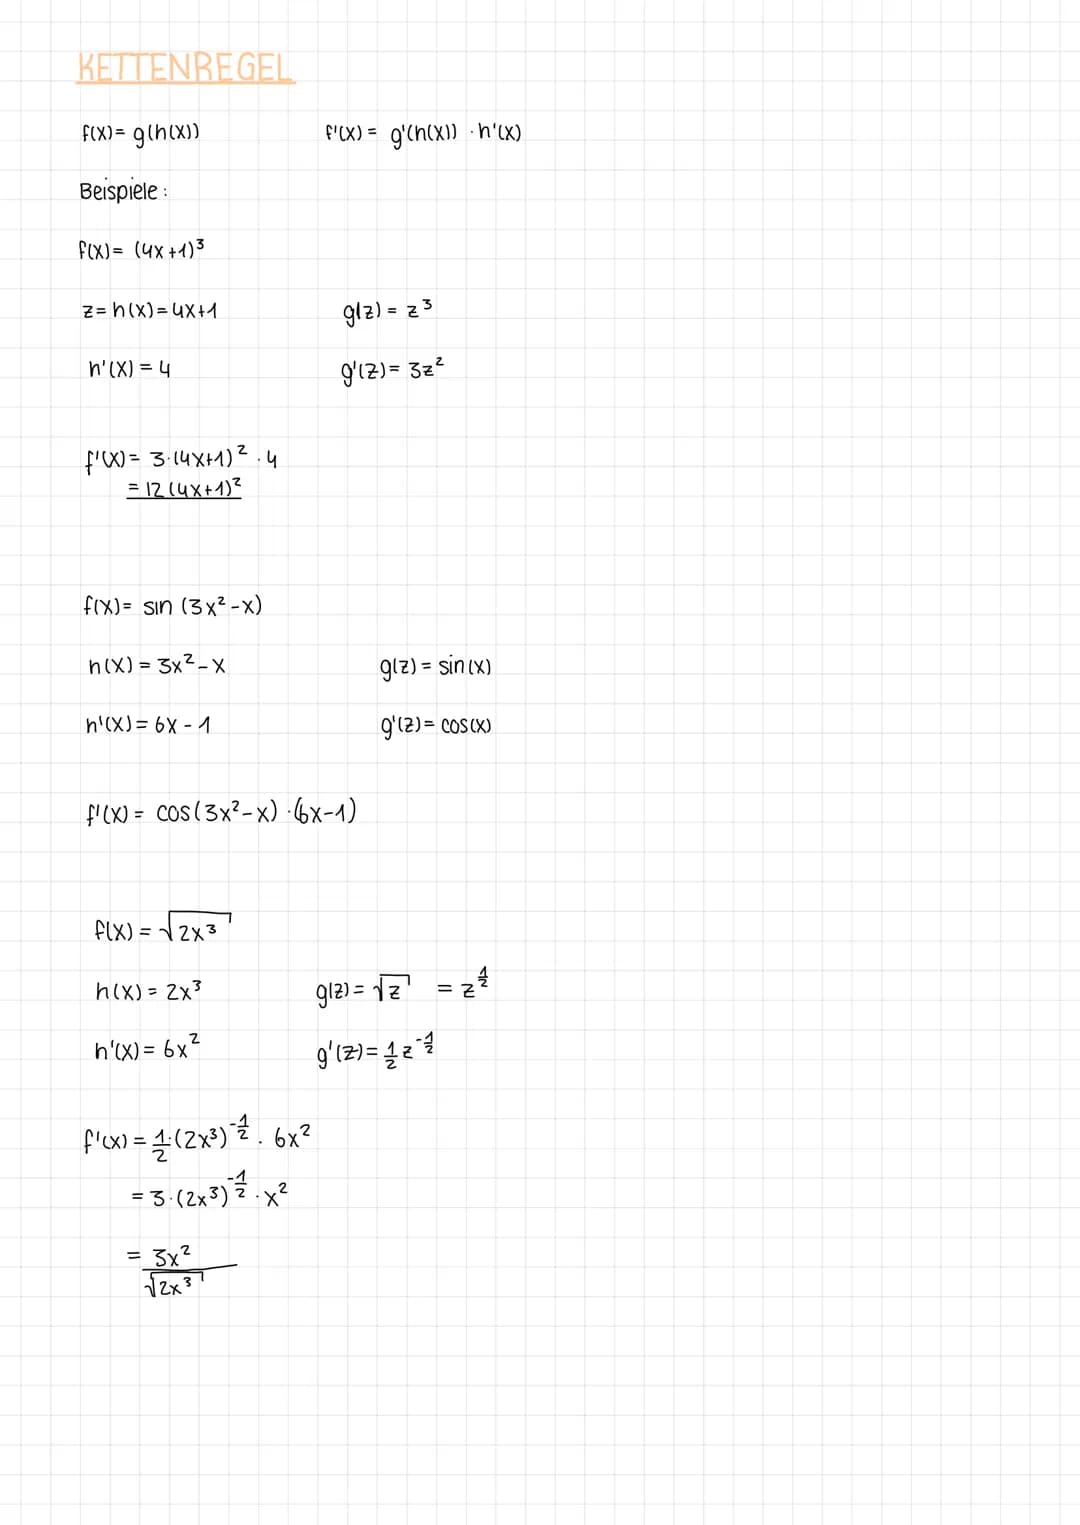 KETTENREGEL
f(x) = g(h(x)) f'(x) = g'(h(x)) · h'(x)
Beispiele :
f(x) = (4x+1)³
z = h(x) = 4x+1 g(z) = z³
h'(x) = 4 g'(z) = 3z²
f'(x) = 3·(4x+1)² · 4
= 12(4x+1)²
f(x) = sin (3x²-x)
h(x) = 3x²-x g(z) = sin(x)
h'(x) = 6x - 1 g'(z) = cos(x)
f'(x) = cos(3x²-x) · (6x-1)
f(x) = √2x³
h(x) = 2x³ g(z) = √z = z^½
h'(x) = 6x² g'(z) = ½ z^-½
f'(x) = ½·(2x³)^-½ · 6x²
= 3·(2x³)^-½ · x²
= 3x²
√2x³